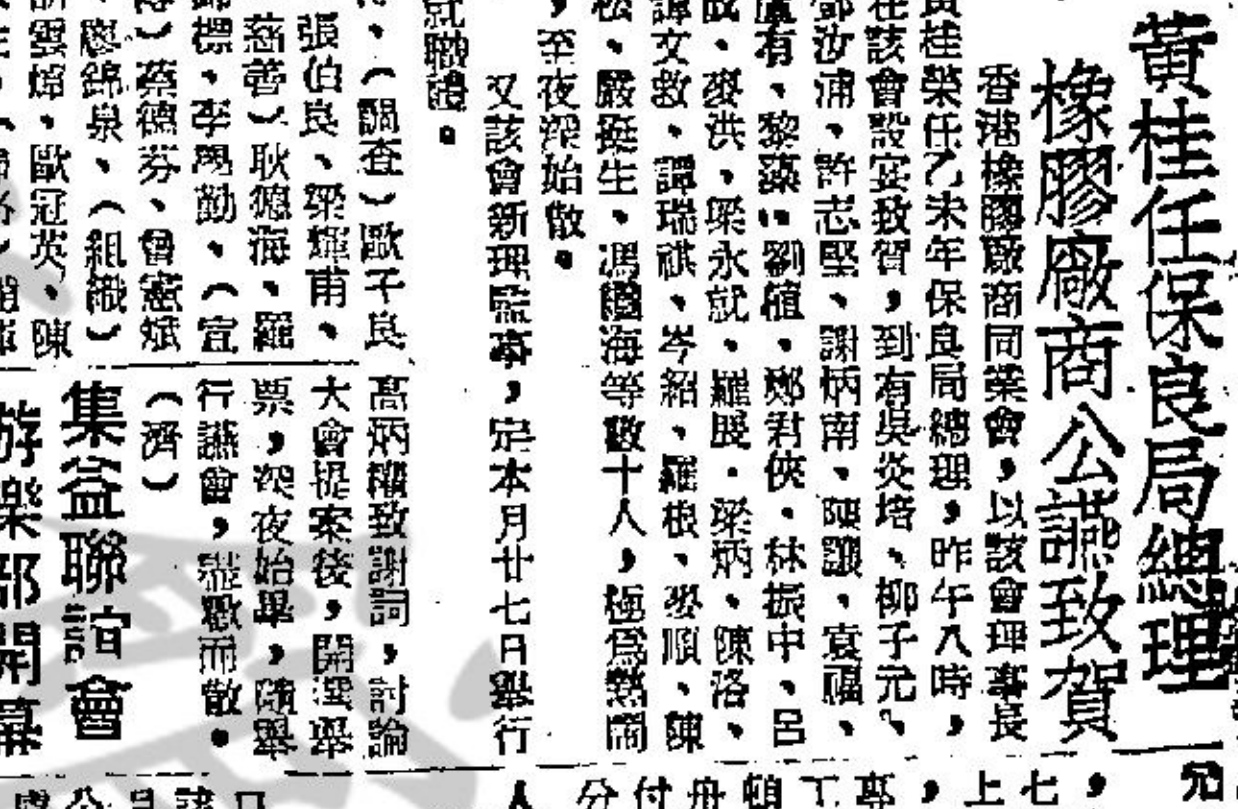 黃桂任保良局總理
橡膠廠商公讌致賀
香港橡膠廠商同業會，以該會理事長
黃桂榮任乙未年保良局總理，昨午八時，
在該會設宴致賀，到有吳炎培、柳子元、
鄧汝浦、許志堅、謝炳南、陳讓、袁福、
盧有、黎藻、劉植、鄭君俠、林振中、呂
成、麥洪、梁永就、羅展、梁炳、陳洛、
譚文救、譚瑞祺、岑紹、羅根、麥順、陳
松、嚴挺生、馮國海等數十人，極爲熱鬧
，至夜深始散。
又該會新理監事，定本月廿七日舉行
就職禮。
、（調查）歐子良
張伯良、梁輝甫、
慈善）耿德海、羅
錦標、李勤、（宣
）蔡德芬、曾憲斌
、廖錦泉、（組織）
雲焯、歐冠英、陳
高炳權致謝詞，討論
大會提案後，開選舉
票，深夜始畢，隨舉
行讌會，盡歡而散。
（濟）
集益聯誼會
游樂部開幕